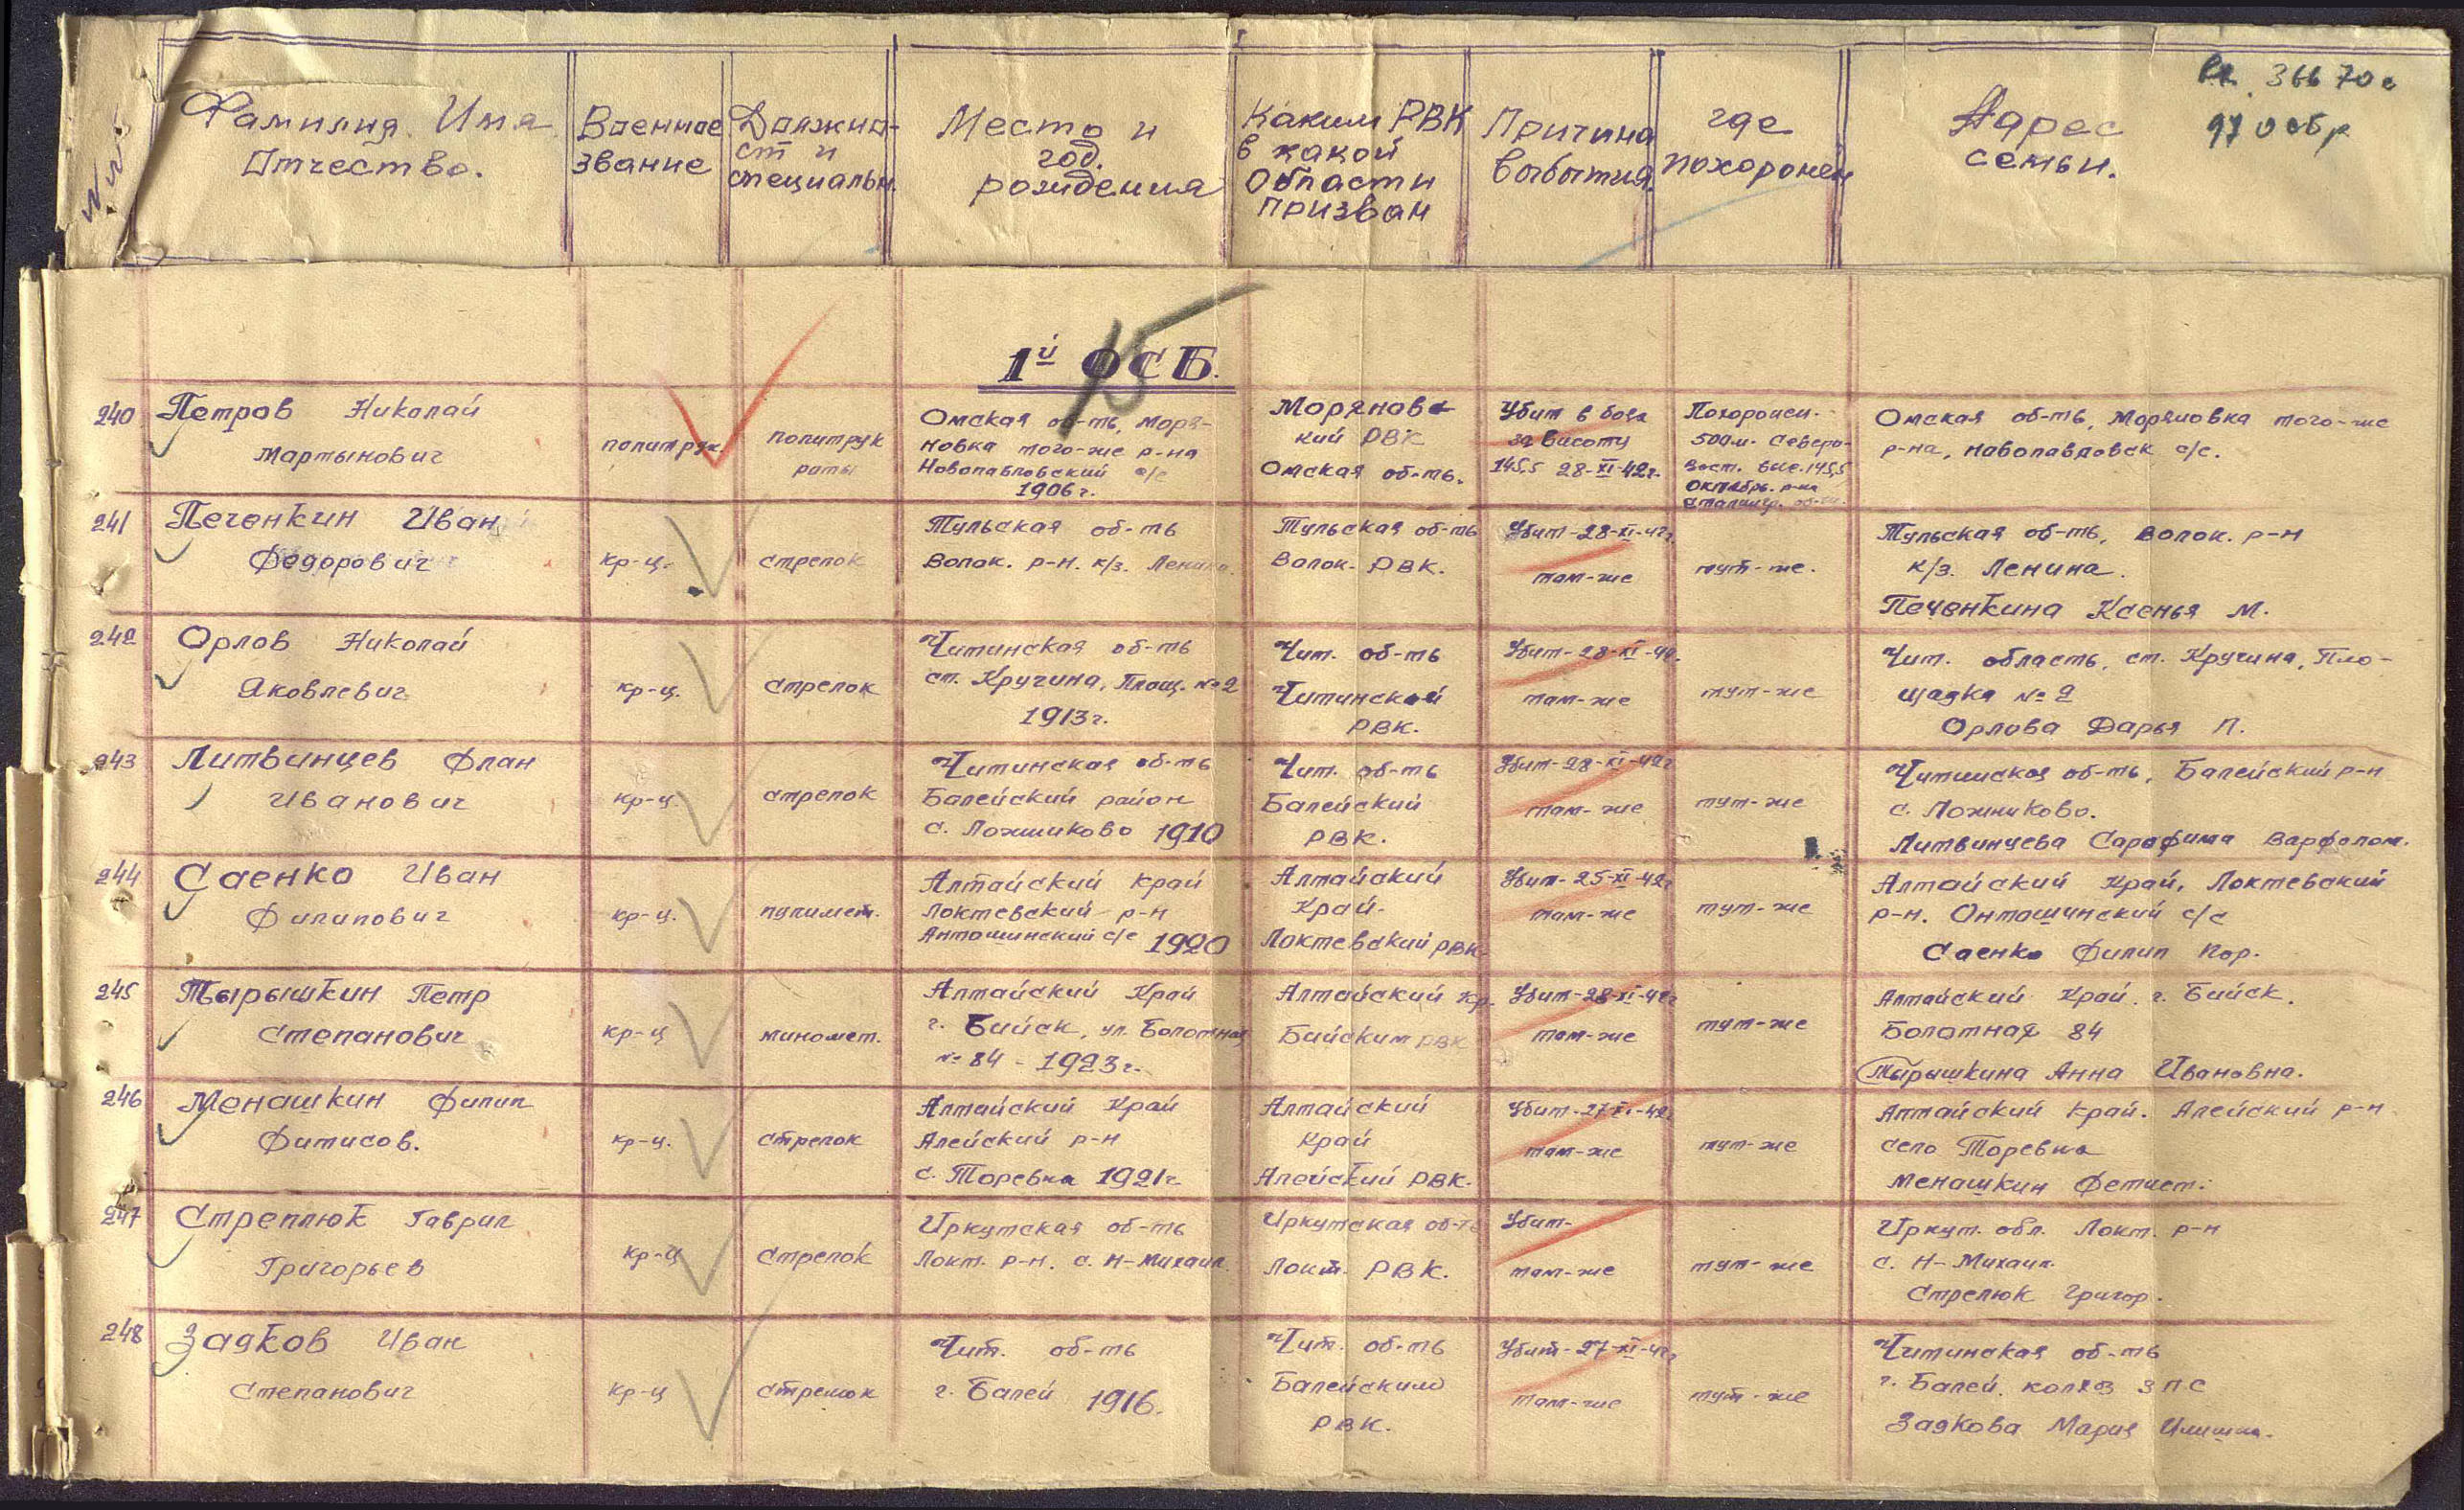 вх. 36670с
97 осбр
№ №
Фамилия Имя
Отчество.
Военное
звание
Должно-
ст и
специальн.
Место и
год.
рождения
Каким РВК
в какой
области
призван
Причина
выбытия.
где
похоронен
Адрес
семьи.
15
1й ОСБ.
240 Петров Николай
Мартынович
политрук
политрук
роты
Омская об-ть, Моря-
новка того-же р-на
Новопавловский с/с
1906г.
Моряновс
кий РВК
Омская об-ть.
Убит в боях
за высоту
145,5 28-XI-42г.
Похоронен.
500м. Северо-
Вост. выс. 145,5
Октябрь. р-на
Сталингр. об-ти.
Омская об-ть, Моряновка того-же
р-на, Новопавловск с/с.
241 Печенкин Иван
Федорович
кр-ц.
стрелок
Тульская об-ть
Волок. р-н. к/з. Ленина.
Тульская об-ть
Волок. РВК.
Убит-28-XI-42г.
там-же
тут-же.
Тульская об-ть, Волок. р-н
к/з. Ленина.
Печенкина Ксенья М.
242 Орлов Николай
Яковлевич
кр-ц.
стрелок
Читинская об-ть
ст. Кручина, Площ. №2
1913г.
Чит. об-ть
Читинской
РВК.
Убит-28-XI-42.
там-же
тут-же
Чит. область, ст. Кручина, Пло-
щадка №2
Орлова Дарья П.
243 Литвинцев Флан
Иванович
кр-ц.
стрелок
Читинская об-ть
Балейский район
с. Ложниково 1910
Чит. об-ть
Балейский
РВК.
Убит-28-XI-42г
там-же
тут-же
Читинская об-ть, Балейский р-н
с. Ложниково.
Литвинцева Сарафима Варфолом.
244 Саенко Иван
Филипович
кр-ц.
пулимет.
Алтайский край
Локтевский р-н
Антошинский с/с 1920
Алтайский
Край-
Локтевский РВК.
Убит-25-XI-42г
там-же
тут-же
Алтайский Край, Локтевский
р-н. Онтошинский с/с
Саенко Филип Кор.
245 Тырышкин Петр
Степанович
кр-ц
миномет.
Алтайский Край
г. Бийск, ул. Болотная
№84 - 1923г.
Алтайский кр.
Бийским РВК
Убит-28-XI-42г
там-же
тут-же
Алтайский Край. г. Бийск.
Болотная 84
Тырышкина Анна Ивановна.
246 Менашкин Филип
Фитисов.
кр-ц.
стрелок
Алтайский Край
Алейский р-н
с. Торевка 1921г
Алтайский
Край
Алейский РВК.
Убит-27-XI-42.
там-же
тут-же
Алтайский Край. Алейский р-н
село Торевка
Менашкин Фетист.
247 Стреплюк Гаврил
Григорьев
кр-ц
стрелок
Иркутская об-ть
Локт. р-н. с. Н-Михаил.
Иркутская об-ть
Локт. РВК.
Убит-
там-же
тут-же
Иркут. обл. Локт. р-н
с. Н-Михаил.
Стрелюк Григор.
248 Задков Иван
Степанович
кр-ц
стрелок
Чит. об-ть
г. Балей 1916.
Чит. об-ть
Балейским
РВК.
Убит-27-XI-42г
там-же
тут-же
Читинская об-ть
г. Балей. колхоз ЗПС
Задкова Мария